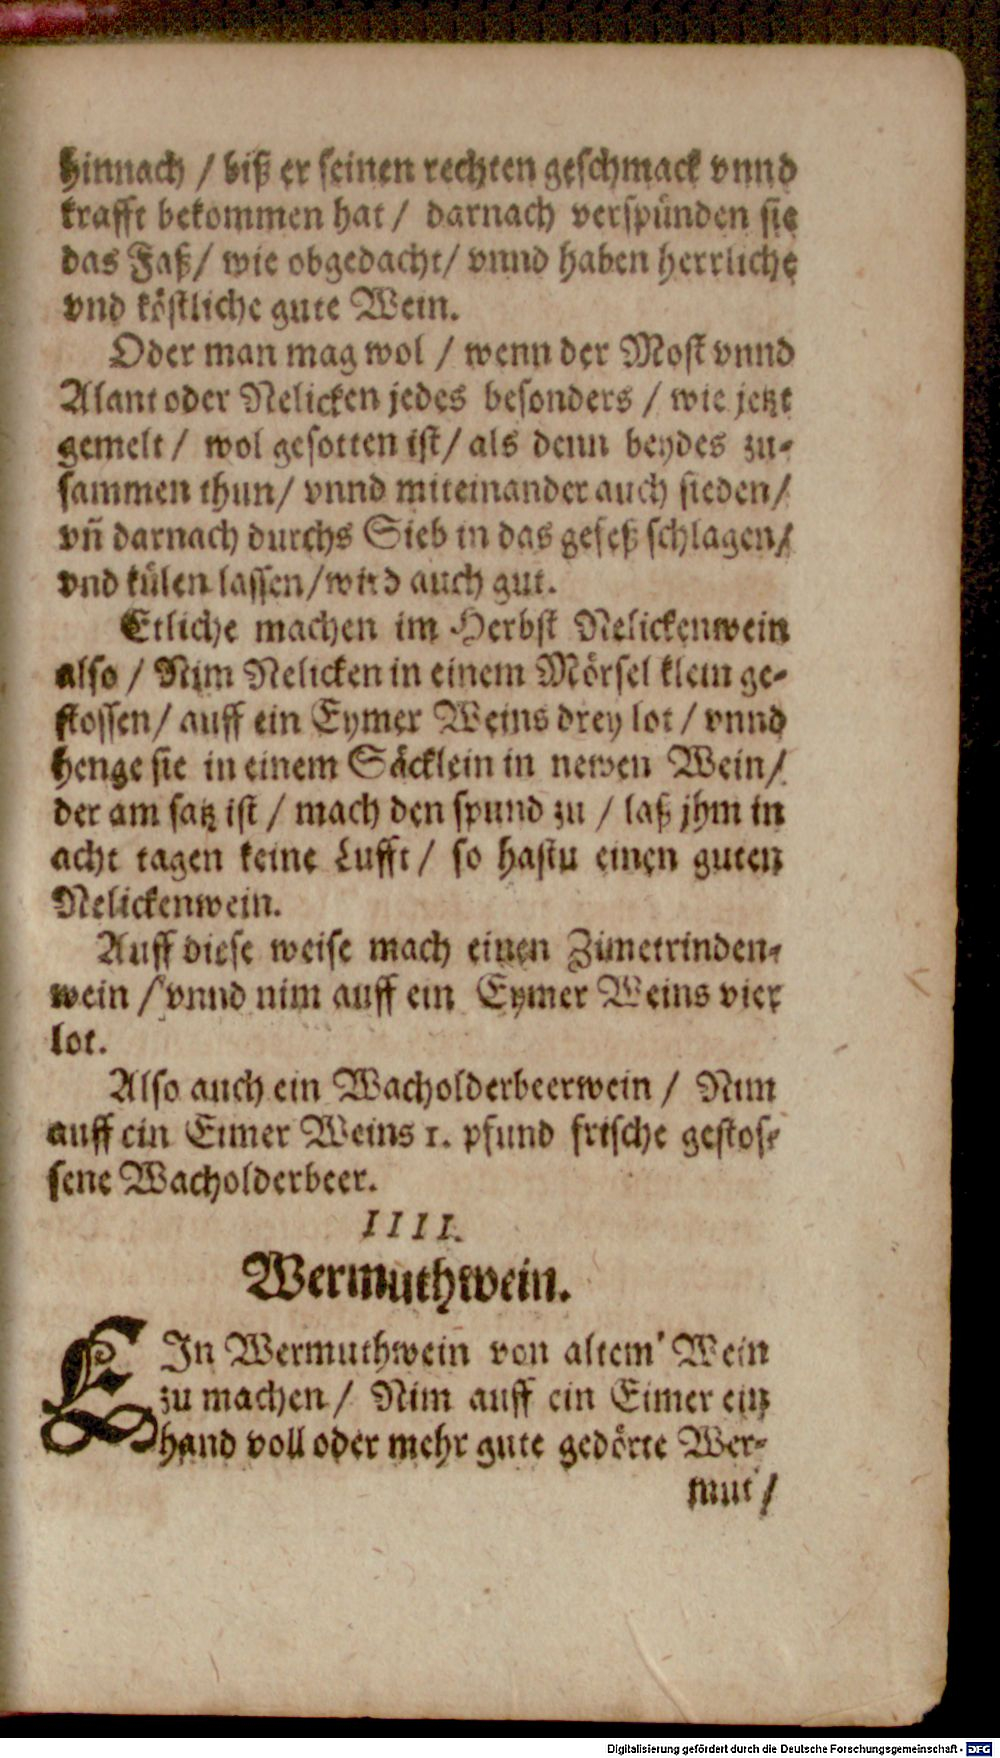 hinnach / biß er seinen rechten geschmack vnnd
krafft bekommen hat / darnach verspünden sie
das Faß / wie obgedacht / vnnd haben herrliche
vnd köstliche gute Wein.
Oder man mag wol / wenn der Most vnnd
Alant oder Nelicken jedes besonders / wie jetzt
gemelt / wol gesotten ist / als denn beydes zu-
sammen thun / vnnd miteinander auch sieden /
vn̄ darnach durchs Sieb in das gefeß schlagen /
vnd külen lassen / wird auch gut.
Etliche machen im Herbst Nelickenwein
also / Nim Nelicken in einem Mörsel klein ge-
stossen / auff ein Eymer Weins drey lot / vnnd
henge sie in einem Säcklein in newen Wein /
der am satz ist / mach den spund zu / laß jhm in
acht tagen keine Lufft / so hastu einen guten
Nelickenwein.
Auff diese weise mach einen Zimetrinden-
wein / vnnd nim auff ein Eymer Weins vier
lot.
Also auch ein Wacholderbeerwein / Nim
auff ein Eimer Weins 1. pfund frische gestos-
sene Wacholderbeer.
IIII.
Wermuthwein.
EIn Wermuthwein von altem Wein
zu machen / Nim auff ein Eimer ein
hand voll oder mehr gute gedörte Wer-
mut /
Digitalisierung gefördert durch die Deutsche Forschungsgemeinschaft - DFG